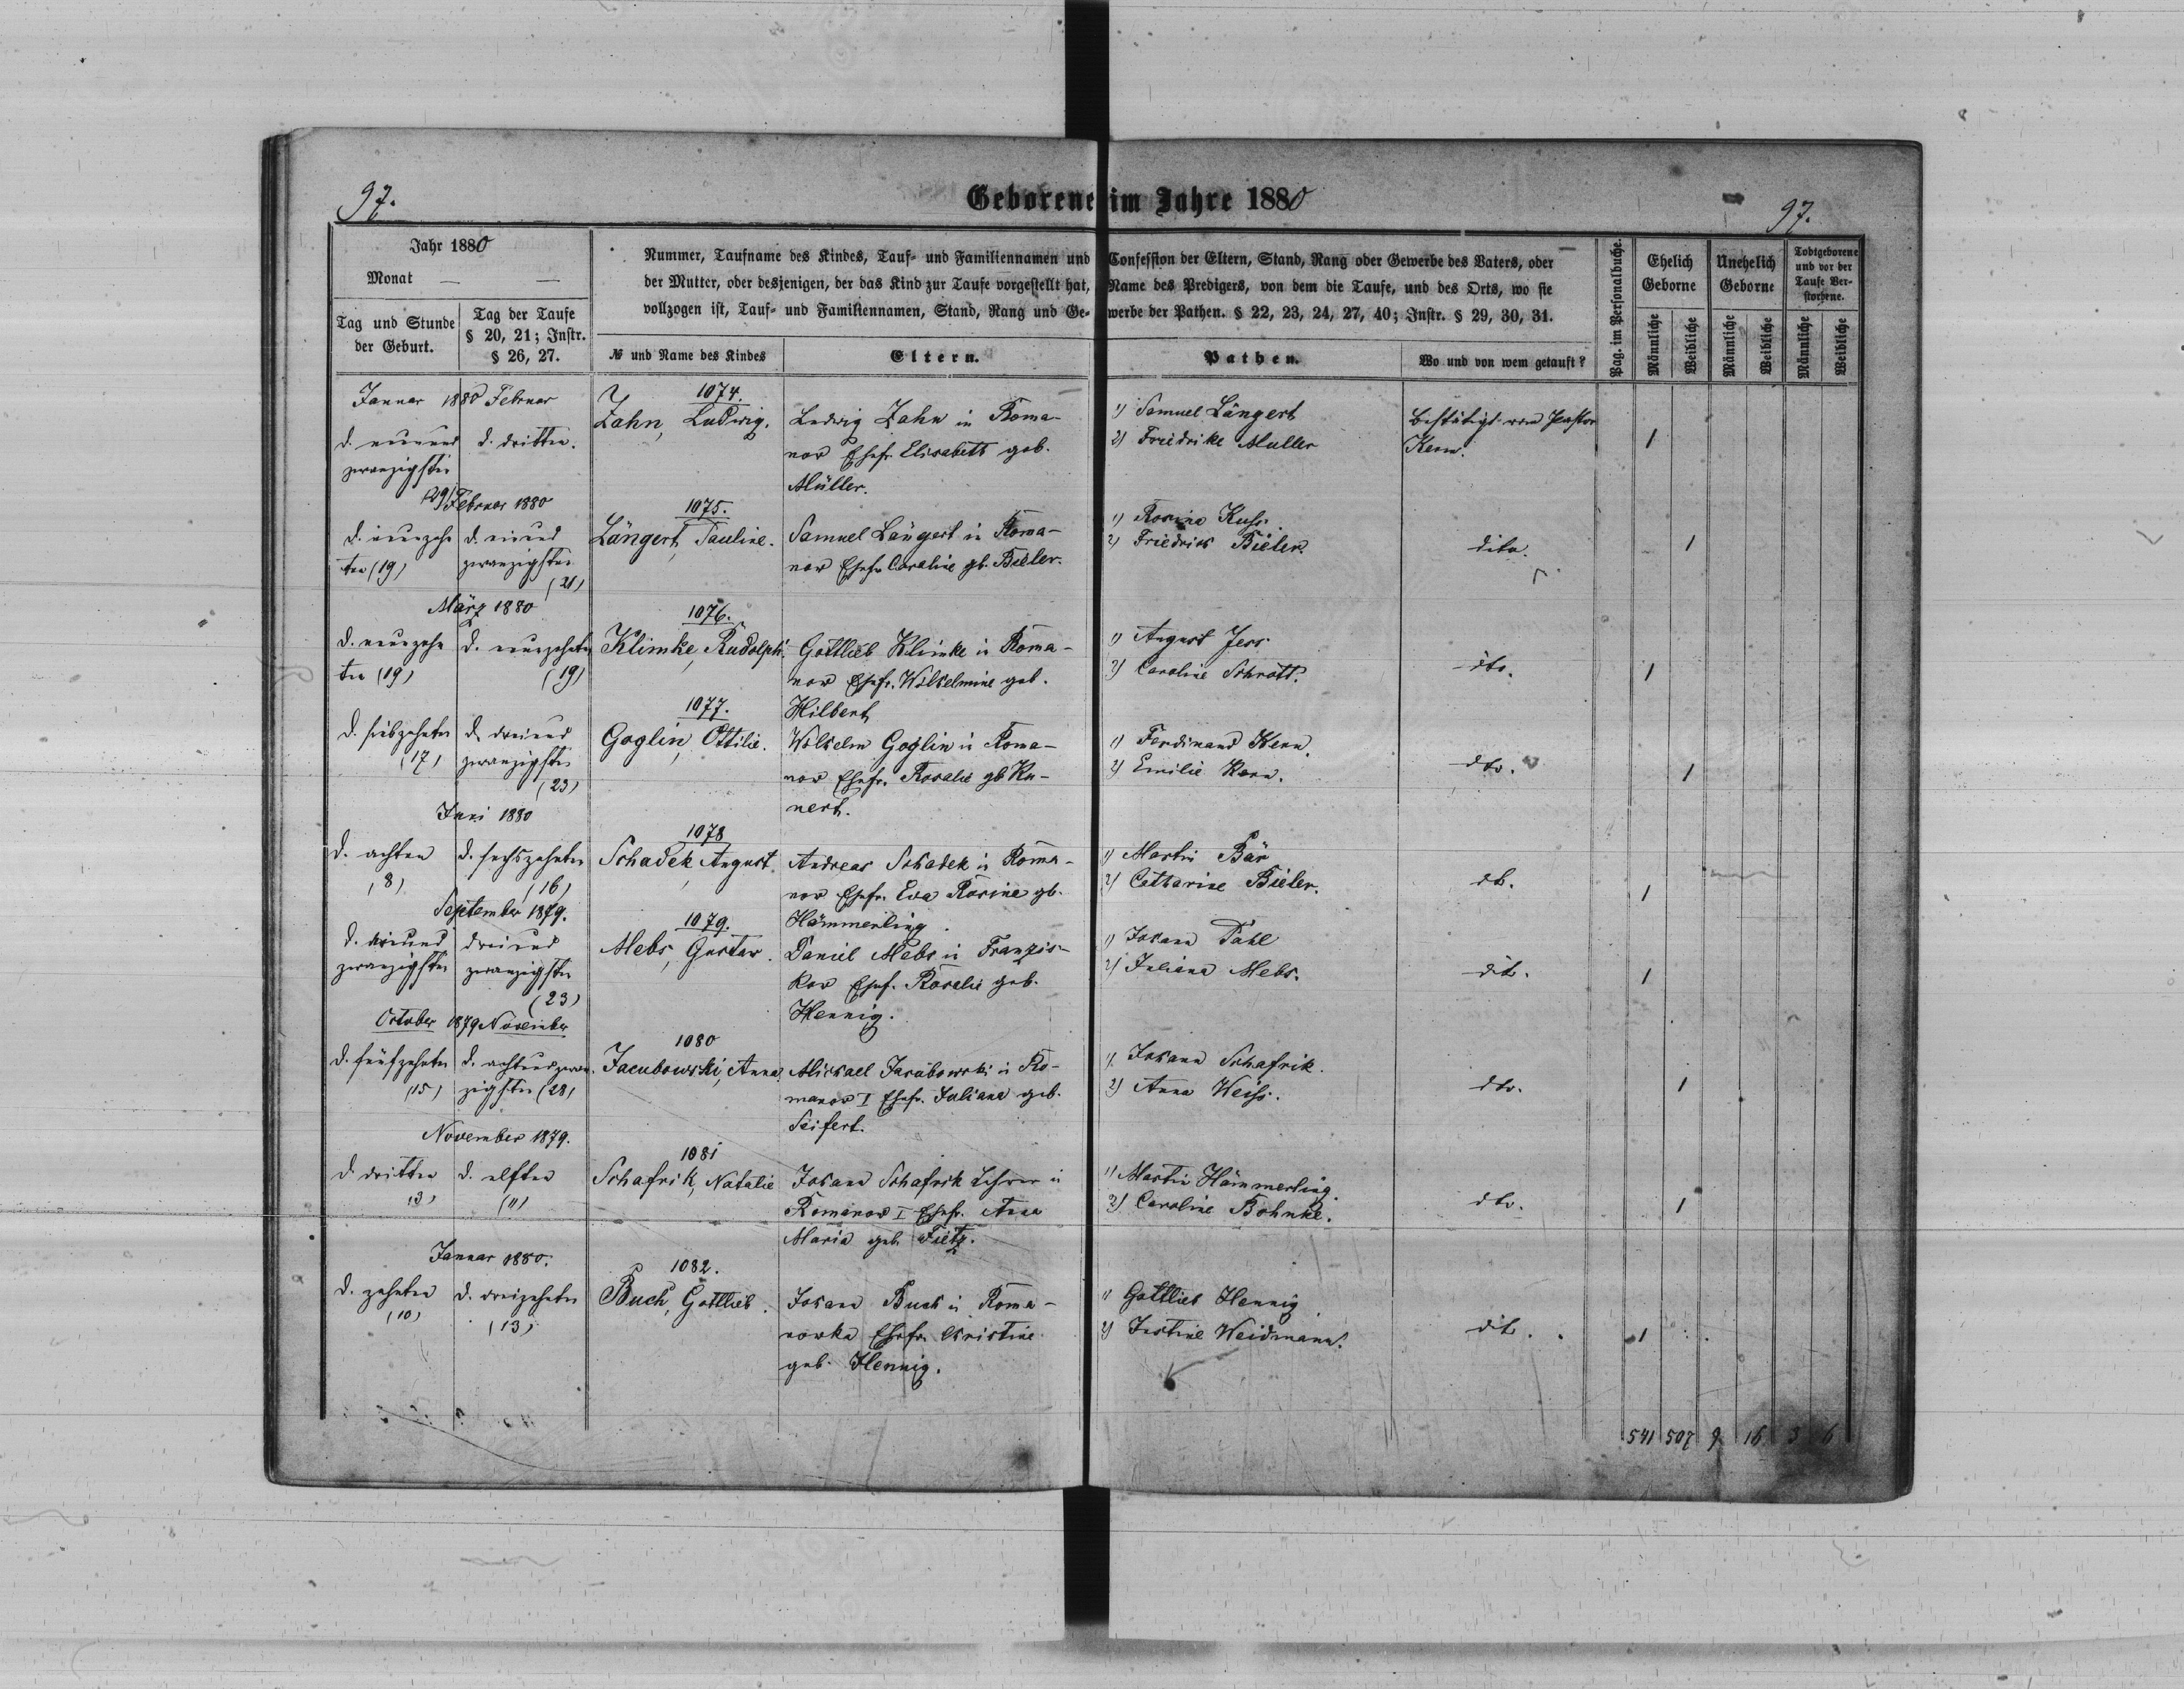 97.
Geborene im Jahre 1880
97.
Jahr 1880
Monat — —
Tag und Stunde der Geburt.
Tag der Taufe § 20, 21; Instr. § 26, 27.
Nummer, Taufname des Kindes, Tauf- und Familiennamen und Confession der Eltern, Stand, Rang oder Gewerbe des Vaters, oder
der Mutter, oder desjenigen, der das Kind zur Taufe vorgestellt hat, Name des Predigers, von dem die Taufe, und des Orts, wo sie
vollzogen ist, Tauf- und Familiennamen, Stand, Rang und Gewerbe der Pathen. § 22, 23, 24, 27, 40; Instr. § 29, 30, 31.
№ und Name des Kindes
Eltern.
Pathen.
Wo und von wem getauft?
Pag. im Personalbuche.
Ehelich Geborne
Unehelich Geborne
Todtgeborene und vor der Taufe Verstorbene.
Männliche
Weibliche
Männliche
Weibliche
Männliche
Weibliche
Januar 1880 Februar
d. neunund
zwanzigsten
(29)
d. dritten.
1074.
Zahn, Ludwig.
Ludwig Zahn in Roma-
now Ehefr. Elisabeth geb.
Müller.
1) Samuel Längert
2) Friedrike Muller
Bestätigt vom Pastor
Kern.
1
Februar 1880
d. neunzehn
ten (19)
d. einund
zwanzigsten
(21)
1075.
Längert, Pauline.
Samuel Längert in Roma-
now Ehefr. Caroline gb. Bieler.
1) Rosine Kuss.
2) Friedrich Bieler.
dito.
1
März 1880
d. neunzehn
ten (19)
d. neunzehnten
(19)
1076.
Klimke, Rudolph.
Gottlieb Klimke in Roma-
now Ehefr. Wilhelmine geb.
Hilbert
1) August Jess
2) Caroline Schrött.
dto.
1
d. siebzehnten
(17)
d. dreiund
zwanzigsten
(23)
1077.
Goglin, Ottilie.
Wilhelm Goglin in Roma-
now Ehefr. Rosalie gb Ku-
nert.
1) Ferdinand Kern.
2) Emilie Kern.
dto.
1
Juni 1880
d. achten
(8)
d. sechszehnten
(16)
1078
Schadek, August.
Andreas Schadek in Roma-
now Ehefr. Eva Rosine gb.
Hämmerling.
1) Martin Bär
2) Catharine Bieler.
dt.
1
September 1879.
zwanzigsten
dreiund
zwanzigsten
(23)
1079.
Mebs, Gustav.
Daniel Mebs in Franzis-
kow Ehef. Rosalie geb.
Hennig.
1) Johann Pahl
2) Juliana Mebs.
dit.
1
October 1879 November
d. fünfzehnten
(15)
d. achtundzwan-
zigsten (28)
1080
Jacubowski, Anna
Michael Jacubowski in Ro-
manow I Ehefr. Juliana geb.
Seifert.
1. Johann Schafrik.
2) Anna Weiss.
dto.
1
November 1879.
d. dritten
(3)
d. elften
(11)
1081
Schafrik, Natalie
Johann Schafrik Lehrer in
Romanow I Ehefr. Anna
Maria geb. Fietz.
1) Martin Hämmerling.
2) Caroline Bohnke.
dto.
1
Januar 1880.
d. zehnten
(10)
d. dreizehnten
(13)
1082.
Buch, Gottlieb.
Johann Buch in Roma-
nowka Ehefr. Christine
geb. Hennig.
1) Gottlieb Hennig
2) Justine Weidmann.
dit.
1
541 507 9 16 3 6